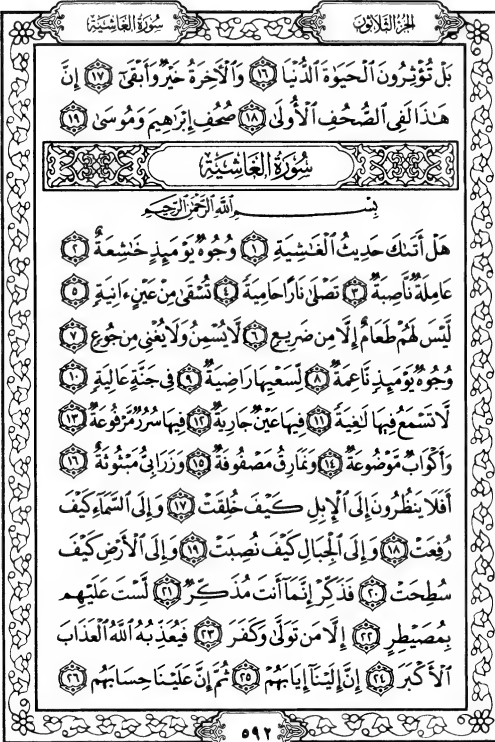 سُورَةُ الغَاشِيَةِ
الجُزْءُ الثَّلَاثُونَ
بَلْ تُؤْثِرُونَ الْحَيَوٰةَ الدُّنْيَا ١٦ وَالْآخِرَةُ خَيْرٌ وَأَبْقَىٰ ١٧ إِنَّ
هَٰذَا لَفِي الصُّحُفِ الْأُولَىٰ ١٨ صُحُفِ إِبْرَاهِيمَ وَمُوسَىٰ ١٩
سُورَةُ الغَاشِيَةِ
بِسْمِ اللَّهِ الرَّحْمَٰنِ الرَّحِيمِ
هَلْ أَتَىٰكَ حَدِيثُ الْغَٰشِيَةِ ١ وُجُوهٌ يَوْمَئِذٍ خَٰشِعَةٌ ٢
عَامِلَةٌ نَّاصِبَةٌ ٣ تَصْلَىٰ نَارًا حَامِيَةً ٤ تُسْقَىٰ مِنْ عَيْنٍ ءَانِيَةٍ ٥
لَّيْسَ لَهُمْ طَعَامٌ إِلَّا مِن ضَرِيعٍ ٦ لَّا يُسْمِنُ وَلَا يُغْنِي مِن جُوعٍ ٧
وُجُوهٌ يَوْمَئِذٍ نَّاعِمَةٌ ٨ لِّسَعْيِهَا رَاضِيَةٌ ٩ فِي جَنَّةٍ عَالِيَةٍ ١٠
لَّا تَسْمَعُ فِيهَا لَٰغِيَةً ١١ فِيهَا عَيْنٌ جَارِيَةٌ ١٢ فِيهَا سُرُرٌ مَّرْفُوعَةٌ ١٣
وَأَكْوَابٌ مَّوْضُوعَةٌ ١٤ وَنَمَارِقُ مَصْفُوفَةٌ ١٥ وَزَرَابِيُّ مَبْثُوثَةٌ ١٦
أَفَلَا يَنظُرُونَ إِلَى الْإِبِلِ كَيْفَ خُلِقَتْ ١٧ وَإِلَى السَّمَاءِ كَيْفَ
رُفِعَتْ ١٨ وَإِلَى الْجِبَالِ كَيْفَ نُصِبَتْ ١٩ وَإِلَى الْأَرْضِ كَيْفَ
سُطِحَتْ ٢٠ فَذَكِّرْ إِنَّمَا أَنتَ مُذَكِّرٌ ٢١ لَّسْتَ عَلَيْهِم
بِمُصَيْطِرٍ ٢٢ إِلَّا مَن تَوَلَّىٰ وَكَفَرَ ٢٣ فَيُعَذِّبُهُ اللَّهُ الْعَذَابَ
الْأَكْبَرَ ٢٤ إِنَّ إِلَيْنَا إِيَابَهُمْ ٢٥ ثُمَّ إِنَّ عَلَيْنَا حِسَابَهُم ٢٦
٥٩٢